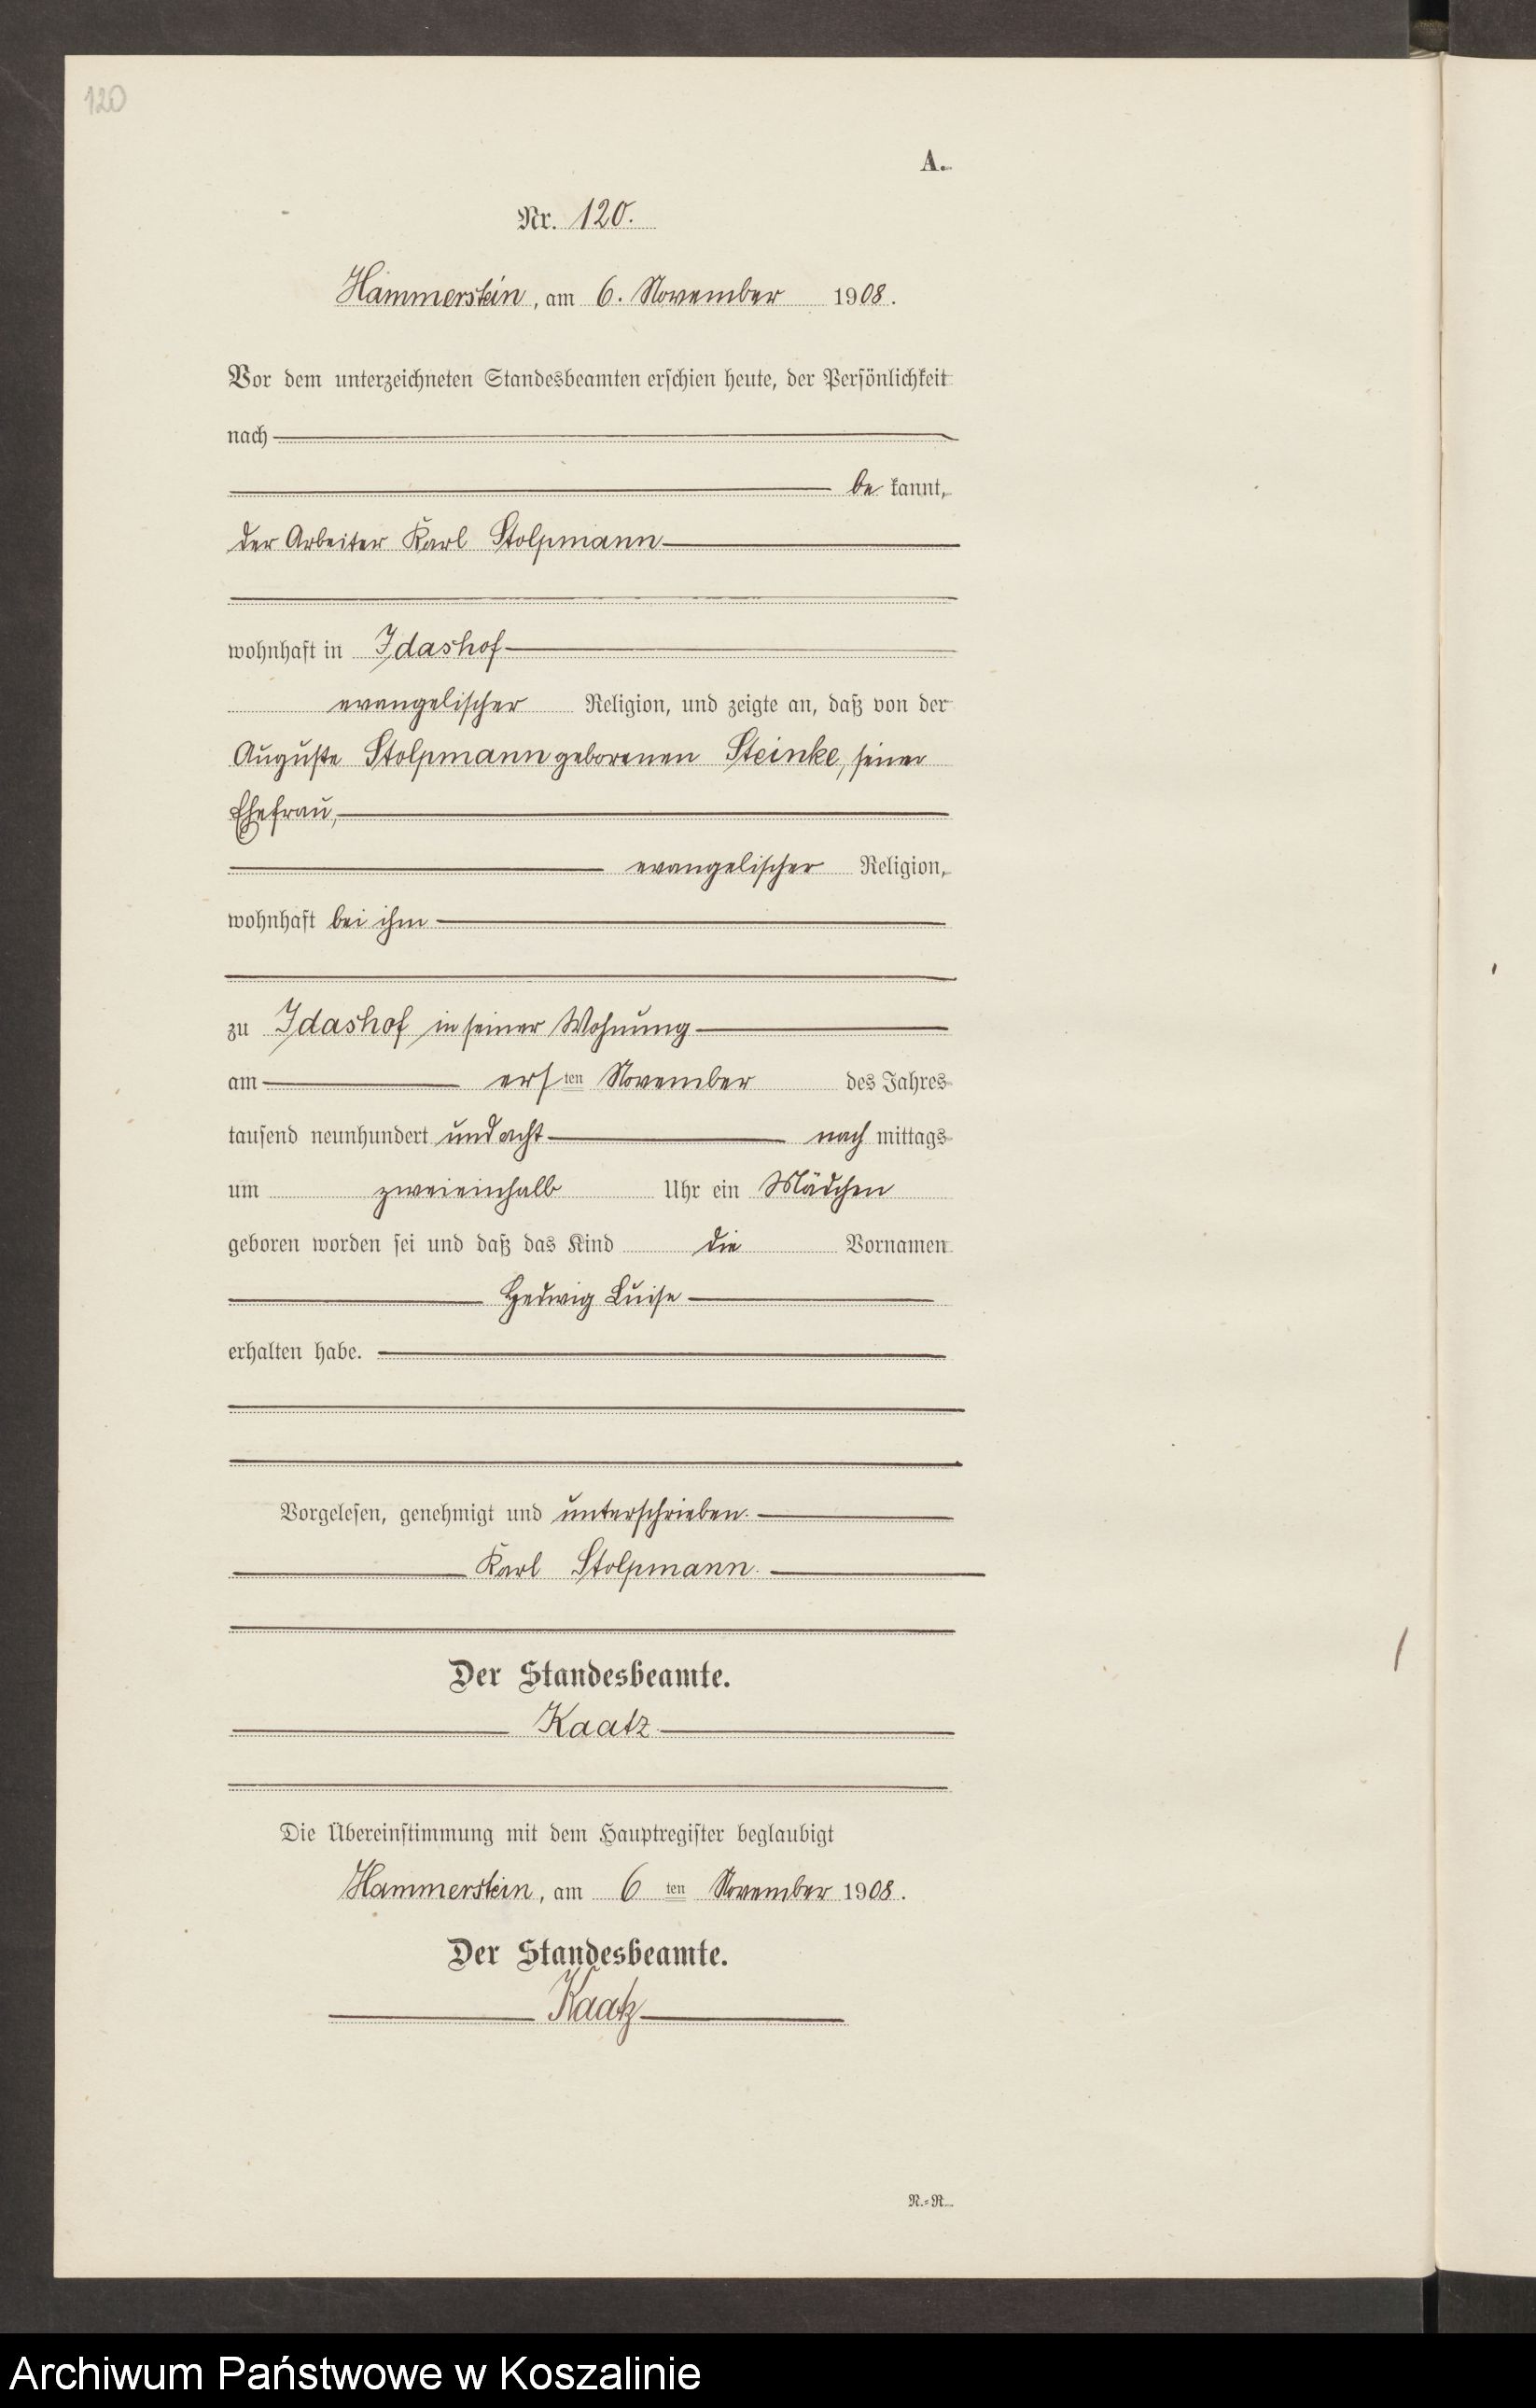 120
A.
Nr. 120.
Hammerstein, am 6. November 1908.
Vor dem unterzeichneten Standesbeamten erschien heute, der Persönlichkeit
nach
be kannt,
der Arbeiter Karl Stolpmann
wohnhaft in Idashof
evangelischer Religion, und zeigte an, daß von der
Auguste Stolpmann geborenen Steinke, seiner
Ehefrau,
evangelischer Religion,
wohnhaft bei ihm
zu Idashof in seiner Wohnung
am ersten November des Jahres
tausend neunhundert und acht nach mittags
um zweieinhalb Uhr ein Mädchen
geboren worden sei und daß das Kind die Vornamen
Hedwig Luise
erhalten habe.
Vorgelesen, genehmigt und unterschrieben.
Karl Stolpmann.
Der Standesbeamte.
Kaatz.
Die Übereinstimmung mit dem Hauptregister beglaubigt
Hammerstein, am 6 ten November 1908.
Der Standesbeamte.
Kaatz
N.=R.
Archiwum Państwowe w Koszalinie